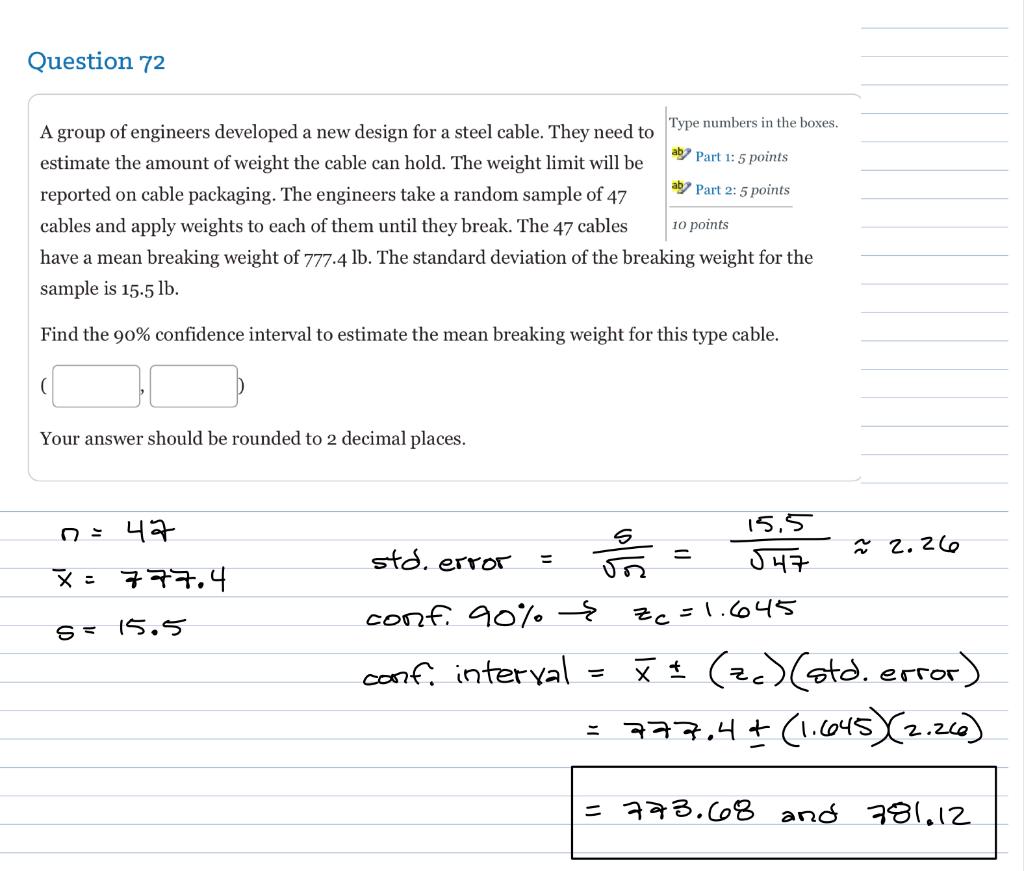 Question 72
A group of engineers developed a new design for a steel cable. They need to
estimate the amount of weight the cable can hold. The weight limit will be
reported on cable packaging. The engineers take a random sample of 47
cables and apply weights to each of them until they break. The 47 cables
have a mean breaking weight of 777.4 lb. The standard deviation of the breaking weight for the
sample is 15.5 lb.
Type numbers in the boxes.
Part 1: 5 points
Part 2: 5 points
10 points
Find the 90% confidence interval to estimate the mean breaking weight for this type cable.
( , )
Your answer should be rounded to 2 decimal places.
n = 47
x̄ = 777.4
s = 15.5
std. error = s/√n = 15.5/√47 ≈ 2.26
conf. 90% → zc = 1.645
conf. interval = x̄ ± (zc)(std. error)
= 777.4 ± (1.645)(2.26)
= 773.68 and 781.12